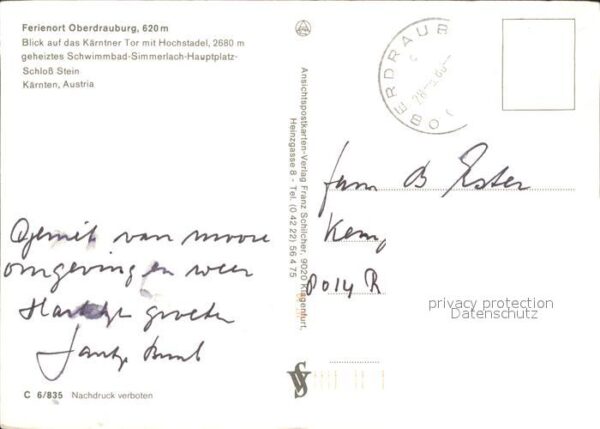 Ferienort Oberdrauburg, 620 m
Blick auf das Kärntner Tor mit Hochstadel, 2680 m
geheiztes Schwimmbad-Simmerlach-Hauptplatz-
Schloß Stein
Kärnten, Austria
Geniet van mooie
omgeving en weer
Hartelijke groeten
C 6/835 Nachdruck verboten
Ansichtspostkarten-Verlag Franz Schilcher, 9020 Klagenfurt,
Heinzgasse 8 - Tel. (0 42 22) 56 4 75
OBERDRAUB
Fam B Ester
8014 R
privacy protection
Datenschutz